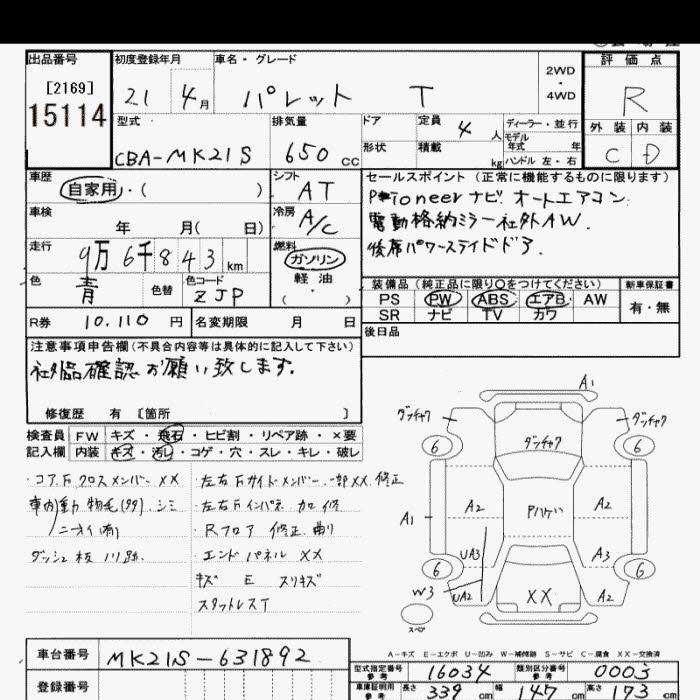 出品番号
[2169]
15114
初度登録年月
21 4月
車名・グレード
パレット T
2WD
・
4WD
評価点
R
外装 内装
C D
型式
CBA-MK21S
排気量
650 cc
ドア
形状
定員 4 人
積載 kg
ディーラー・並行
モデル
年式 年
ハンドル 左・右
車歴
自家用・( )
シフト
AT
セールスポイント (正常に機能するものに限ります)
Pioneerナビ オートエアコン.
電動格納ミラー 社外AW.
後席パワースライドドア.
車検
年 月( 日)
冷房
A/C
走行
9万6千843km
燃料
ガソリン
軽油・
( )
色
青
色替
色コード
ZJP
装備品 (純正品に限り○をつけてください)
新車保証書
PS PW ABS エアB AW
SR ナビ TV カワ
有・無
R券 10.110 円
名変期限 月 日
後日品
注意事項申告欄(不具合内容等は具体的に記入して下さい)
社外品確認お願い致します.
修復歴 有 [箇所 ]
検査員
記入欄
FW キズ・飛石・ヒビ割・リペア跡・×要
内装 キズ・汚レ・コゲ・穴・スレ・キレ・破レ
・コアFクロスメンバー XX
・左右Fサイドメンバー 一部XX 修正
車内 動物毛(99) シミ
・左右Fインパネ 加修
ニオイ(有)
・Rフロア 修正 曲り
ダッシュ板
・エンドパネル XX
キズ E スリキズ
スタッドレスT
A1
ダッチャク
ダッチャク
ダッチャク
6
6
A1
A2
Pハゲ
A2
UA3
A3
6
6
W3
UA2
XX
A2
スペア
A-キズ E-エクボ U-凹み W-補修跡 S-サビ C-腐食 XX-交換済
車台番号
MK21S-631892
登録番号
型式指定番号
参考
16034
類別区分番号
参考
0003
車庫証明用
参考
長さ 339 cm 幅 147 cm 高さ 173 cm